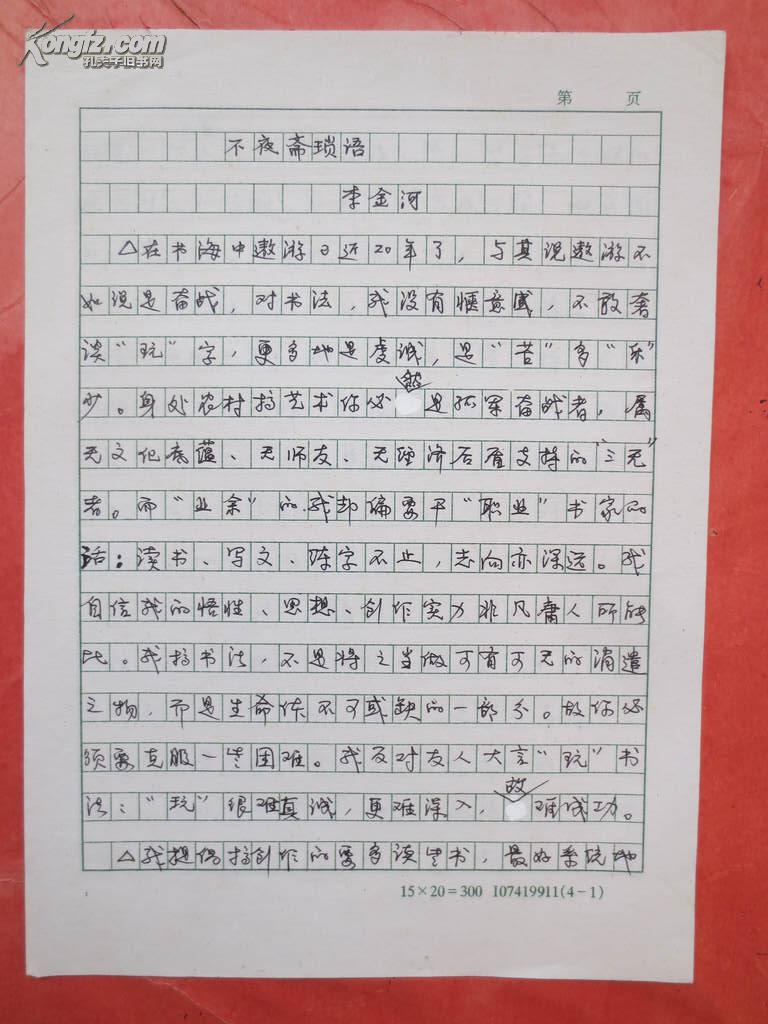 Kongfz.com
孔夫子旧书网
第 页
不夜斋琐语
李金河
△在书海中遨游日近20年了，与其说遨游不
如说是奋战，对书法，我没有惬意感，不敢奢
谈“玩”字，更多地是虔诚，是“苦”多“乐”
少。身处农村搞艺术你必然是孤军奋战者，属
无文化底蕴、无师友、无经济后盾支持的“三无”
者。而“业余”的我却偏要干“职业”书家的
活：读书、写文、练字不止，志向亦深远。我
自信我的悟性、思想、创作实力非凡庸人所能
比。我搞书法，不是将之当做可有可无的消遣
之物，而是生命体不可或缺的一部分。故你必
须要克服一些困难。我反对友人大言“玩”书
法：“玩”很难真诚，更难深入，故难成功。
△我想偶搞创作的要多读些书，最好系统地
15×20=300 I07419911(4-1)